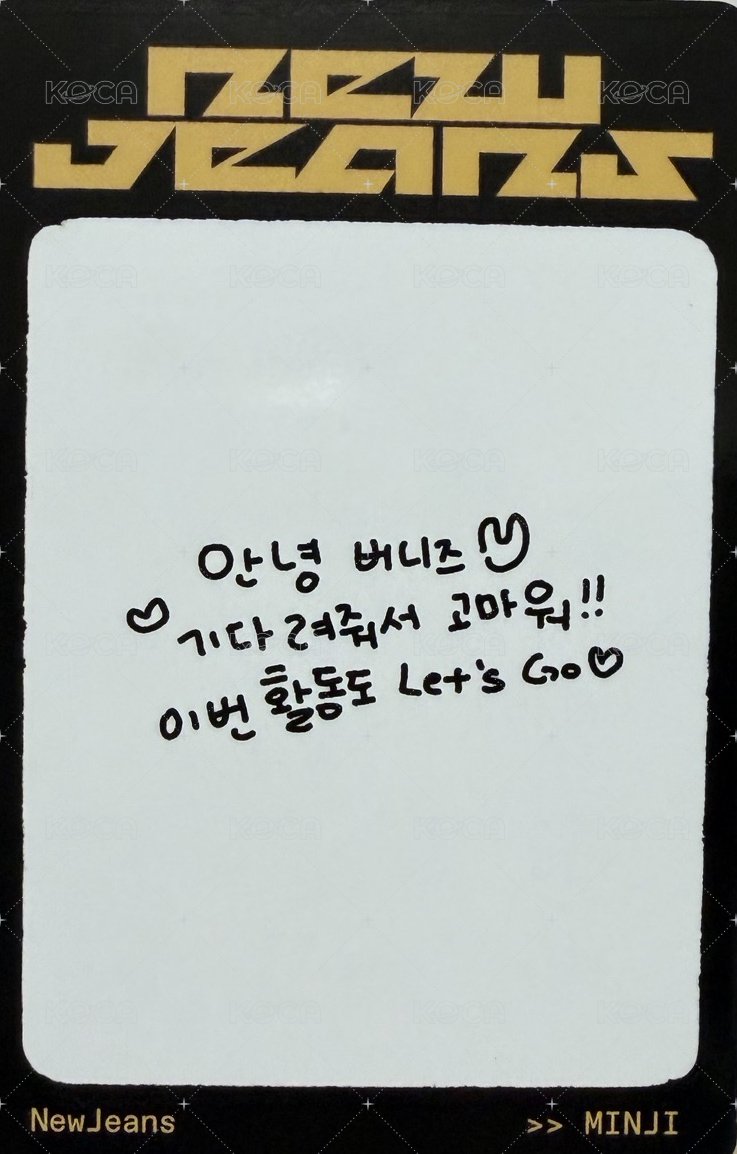 NEW
JEANS
안녕 버니즈
기다려줘서 고마워!!
이번 활동도 Let's Go
NewJeans >> MINJI
KOCA